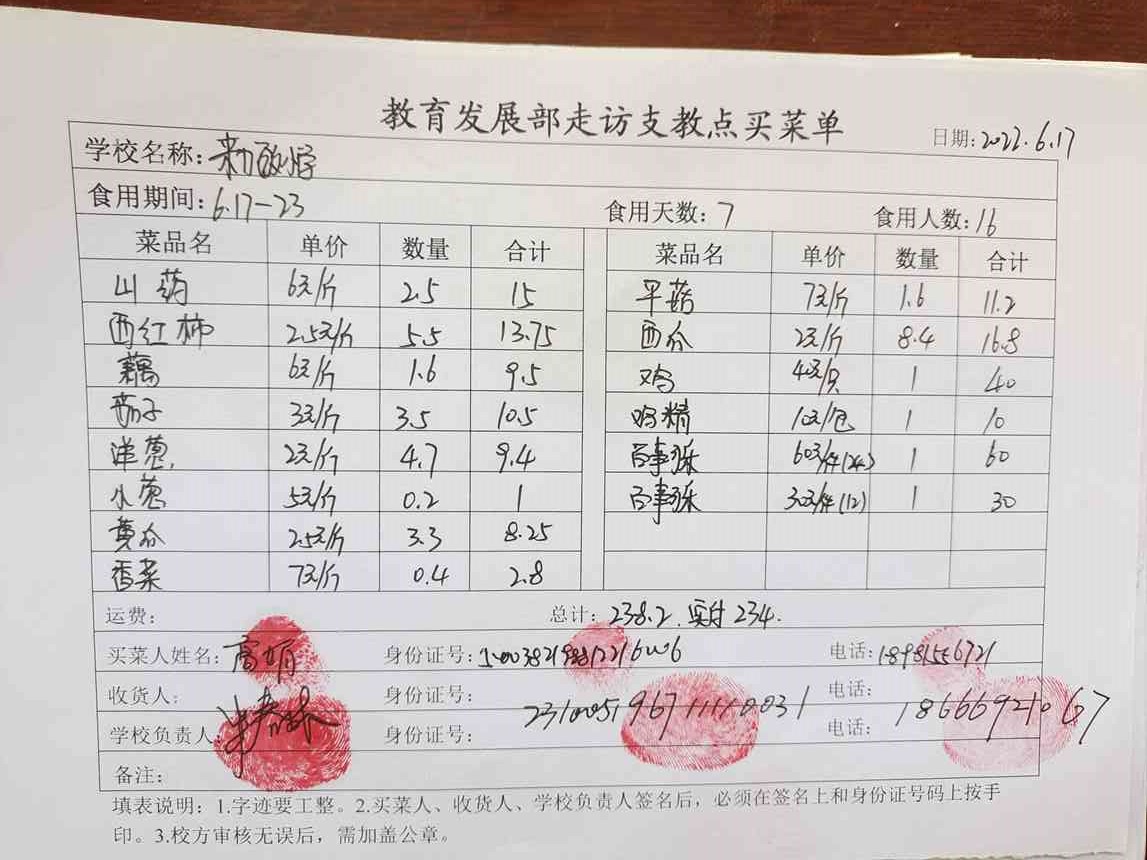 教育发展部走访支教点买菜单
日期:2022.6.17
学校名称:
食用期间:6.17-23 食用天数:7 食用人数:16
菜品名 单价 数量 合计 菜品名 单价 数量 合计
山药 6元/斤 2.5 15 平菇 7元/斤 1.6 11.2
西红柿 2.5元/斤 5.5 13.75 西瓜 2元/斤 8.4 16.8
藕 6元/斤 1.6 9.5 鸡 40元/只 1 40
茄子 3元/斤 3.5 10.5 鸡精 10元/包 1 10
洋葱 2元/斤 4.7 9.4 百事可乐 60元/件(24) 1 60
小葱 5元/斤 0.2 1 百事可乐 30元/件(12) 1 30
黄瓜 2.5元/斤 3.3 8.25
香菜 7元/斤 0.4 2.8
运费: 总计:238.2.实付234.
买菜人姓名:高娟 身份证号: 电话:
收货人: 身份证号: 电话:
学校负责人 身份证号: 电话:
备注:
填表说明:1.字迹要工整。2.买菜人、收货人、学校负责人签名后,必须在签名上和身份证号码上按手
印。3.校方审核无误后,需加盖公章。